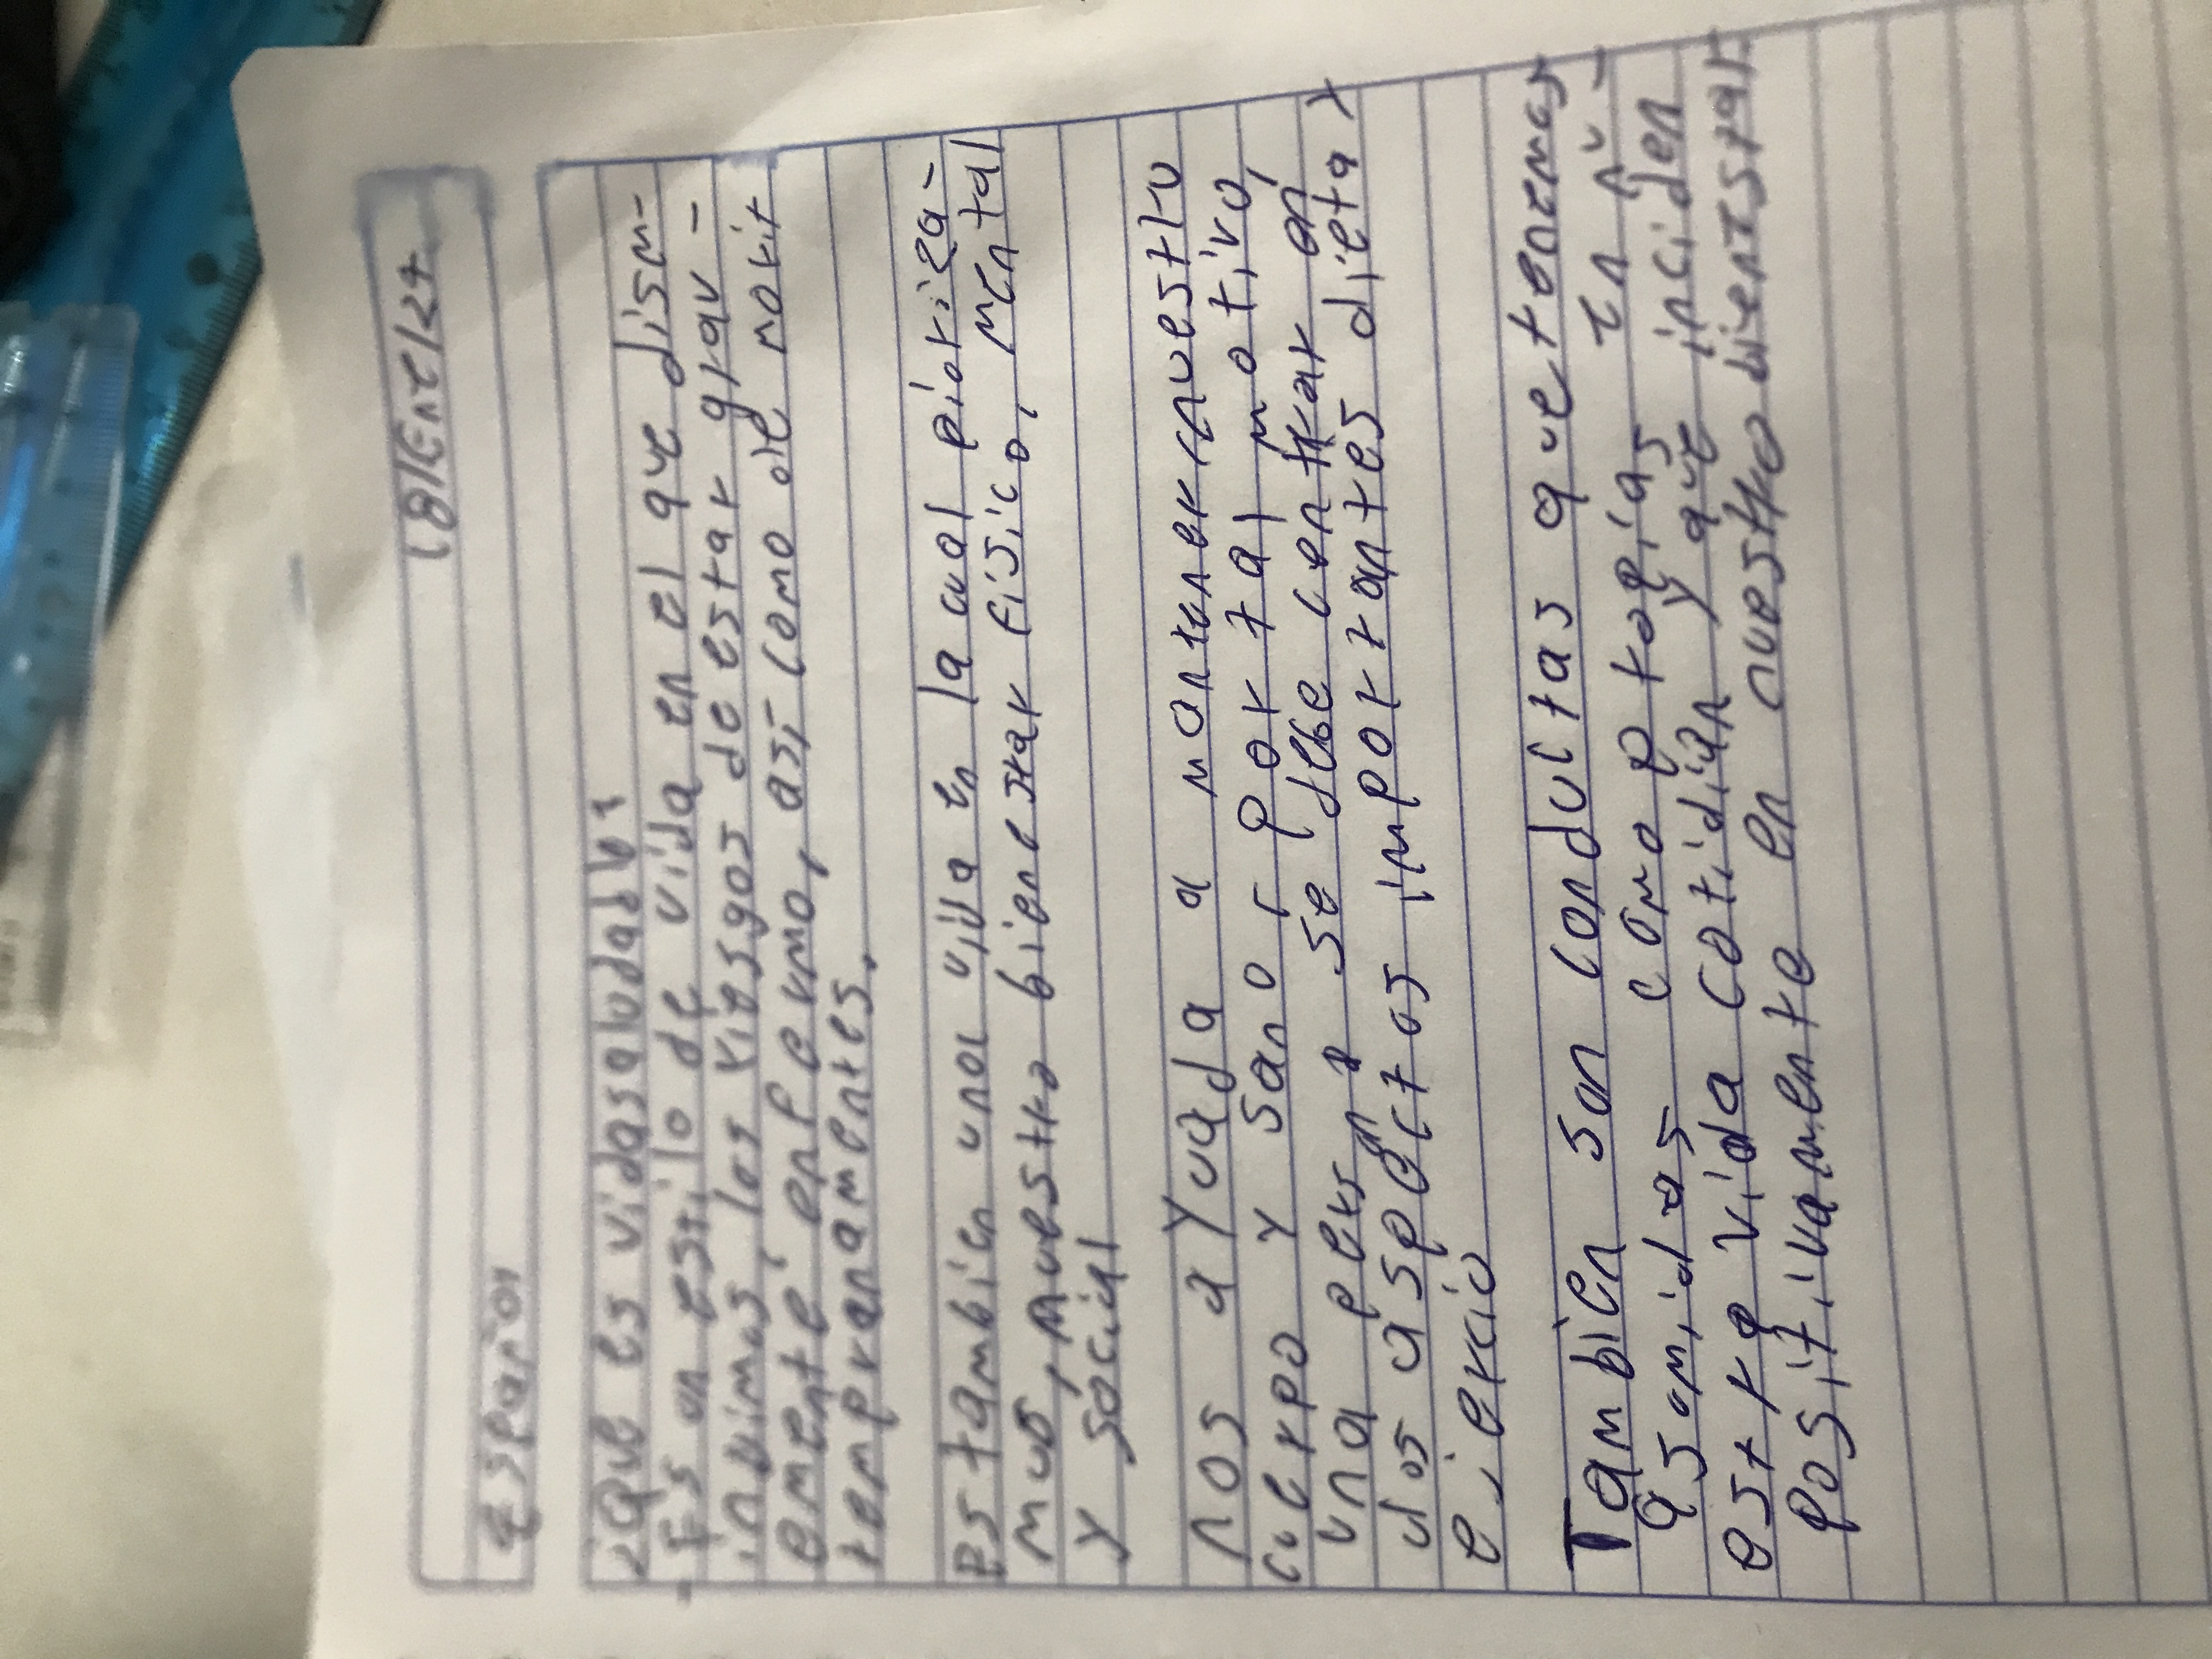 18/Ene/24
español
¿Que es vidasaludabl?
Es un estilo de vida en el que dism-
inuimos, los riesgos de estar grav-
emente enfermo, así como de morir
tempranamentes.
Estambien una vida en la cual prioriza-
mos, nuestro bienestar físico, mental
y social
nos ayuda a mantener nuestro
cuerpo y sano r por tal motivo,
una persona se debe centrar en
dos aspectos importantes dieta y
ejercio
También son conductas que tenemos
asmidas como propias en n-
estra vida cotidian y que inciden
positivamente en nuestro bienestar.